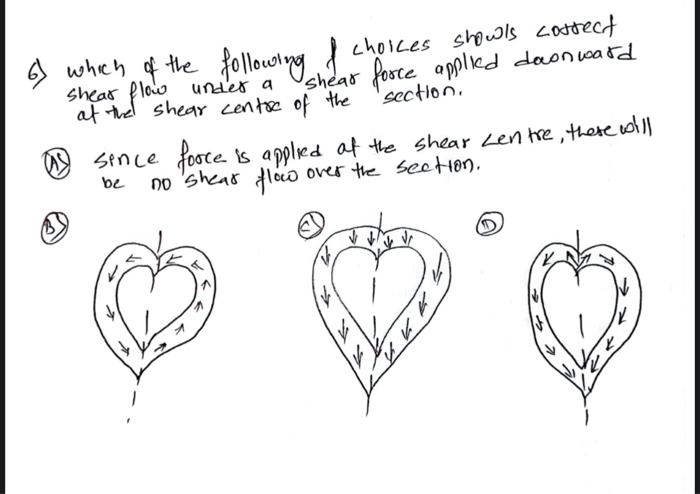 6) which of the following choices shows correct
shear flow under a shear force applied downward
at the shear centre of the section.
A) Since force is applied at the shear centre, there will
be no shear flow over the section.
B) C) D)